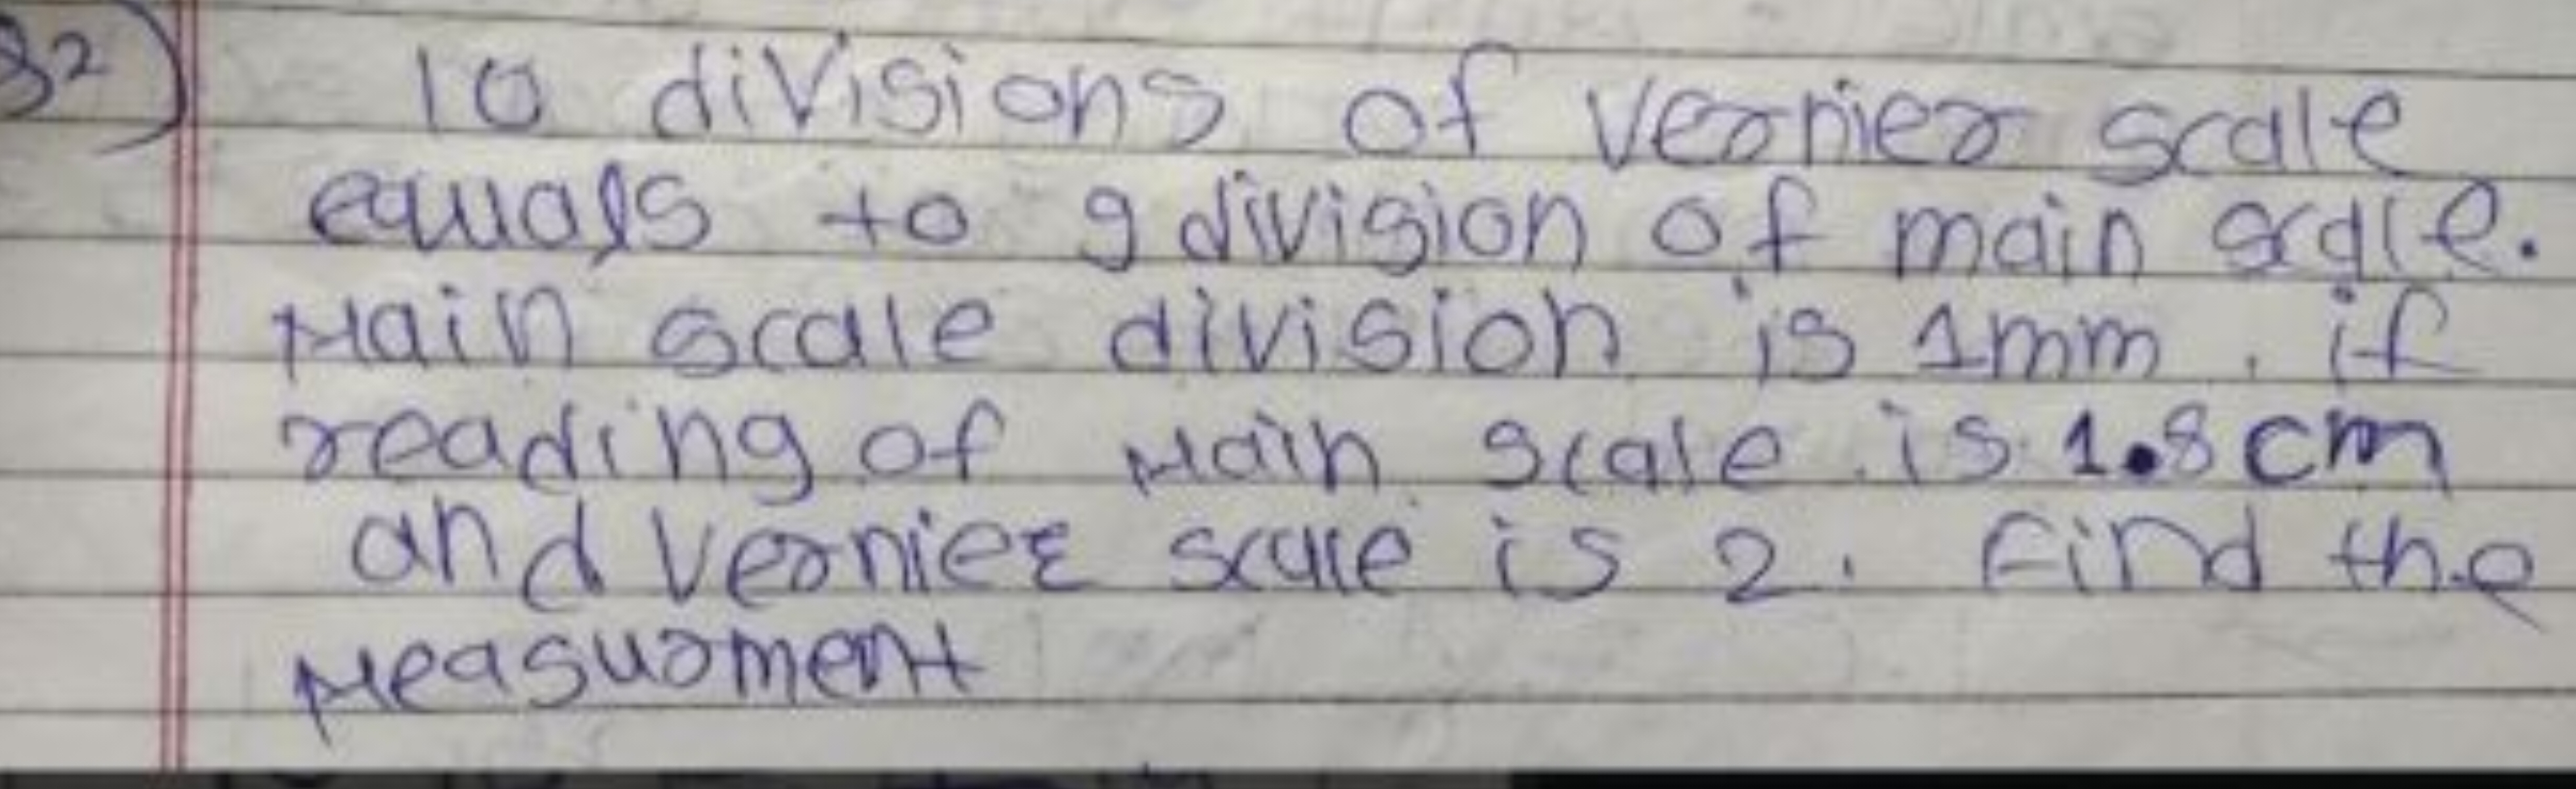 82) 10 divisions of vernier scale
equals to 9 division of main scale.
Main scale division is 1mm. if
reading of Main scale is 1.8 cm
and vernier scale is 2. Find the
Measurment